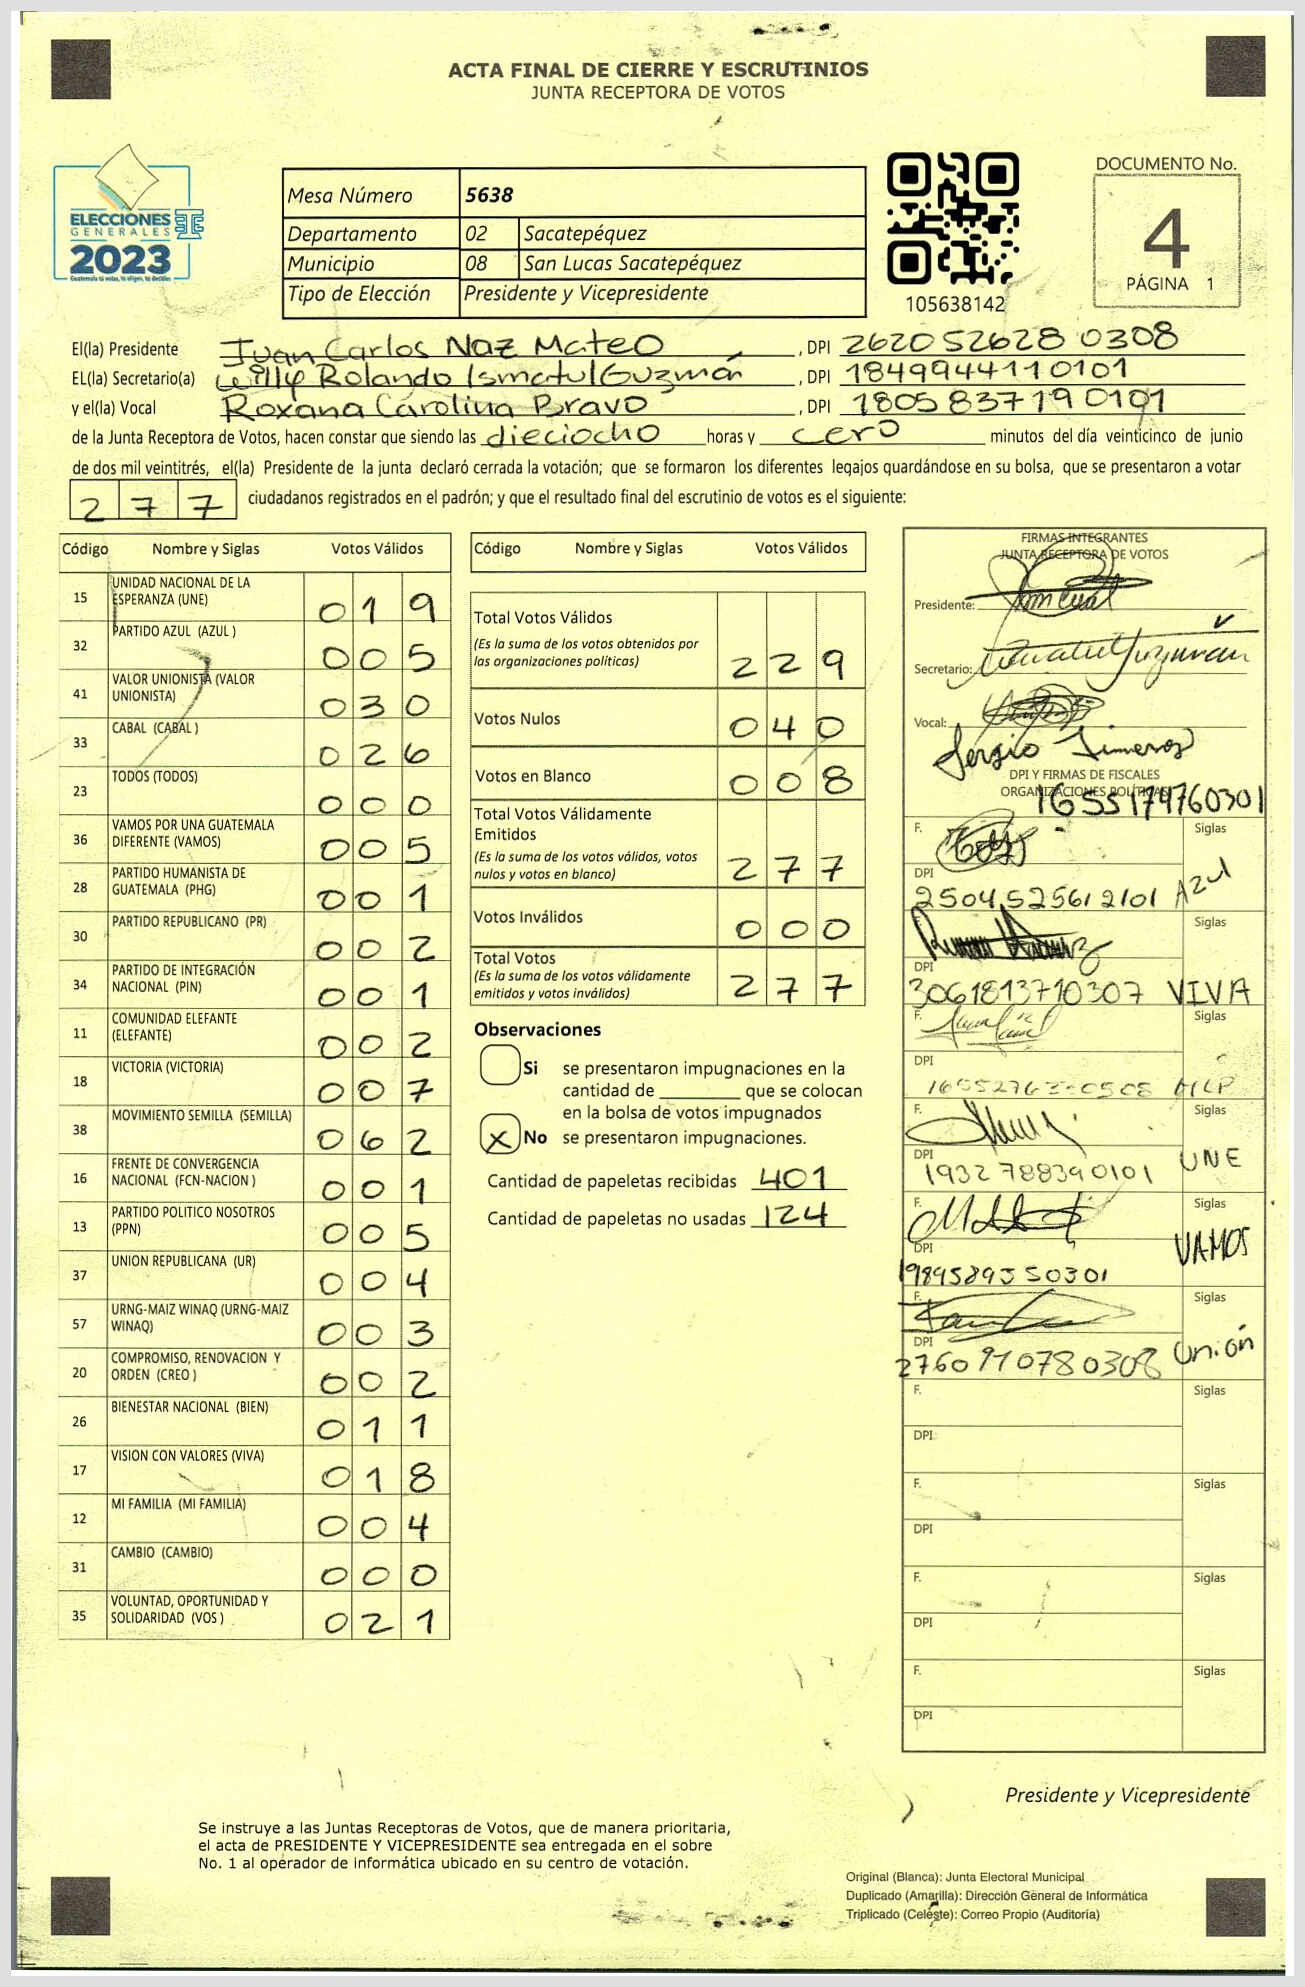 ACTA FINAL DE CIERRE Y ESCRUTINIOS
JUNTA RECEPTORA DE VOTOS
ELECCIONES
GENERALES
2023
Mesa Número 5638
Departamento 02 Sacatepéquez
Municipio 08 San Lucas Sacatepéquez
Tipo de Elección Presidente y Vicepresidente
105638142
DOCUMENTO No.
4
PÁGINA 1
El(la) Presidente Juan Carlos Naz Mateo , DPI 2620526280308
EL(la) Secretario(a) Willy Rolando Ismatul Guzmán , DPI 1849944110101
y el(la) Vocal Roxana Carolina Bravo , DPI 1805837190101
de la Junta Receptora de Votos, hacen constar que siendo las dieciocho horas y cero minutos del día veinticinco de junio
de dos mil veintitrés, el(la) Presidente de la junta declaró cerrada la votación; que se formaron los diferentes legajos quardándose en su bolsa, que se presentaron a votar
277 ciudadanos registrados en el padrón; y que el resultado final del escrutinio de votos es el siguiente:
Código Nombre y Siglas Votos Válidos
15 UNIDAD NACIONAL DE LA ESPERANZA (UNE) 019
32 PARTIDO AZUL (AZUL ) 005
41 VALOR UNIONISTA (VALOR UNIONISTA) 030
33 CABAL (CABAL ) 026
23 TODOS (TODOS) 000
36 VAMOS POR UNA GUATEMALA DIFERENTE (VAMOS) 005
28 PARTIDO HUMANISTA DE GUATEMALA (PHG) 001
30 PARTIDO REPUBLICANO (PR) 002
34 PARTIDO DE INTEGRACIÓN NACIONAL (PIN) 001
11 COMUNIDAD ELEFANTE (ELEFANTE) 002
18 VICTORIA (VICTORIA) 007
38 MOVIMIENTO SEMILLA (SEMILLA) 062
16 FRENTE DE CONVERGENCIA NACIONAL (FCN-NACION ) 001
13 PARTIDO POLITICO NOSOTROS (PPN) 005
37 UNION REPUBLICANA (UR) 004
57 URNG-MAIZ WINAQ (URNG-MAIZ WINAQ) 003
20 COMPROMISO, RENOVACION Y ORDEN (CREO ) 002
26 BIENESTAR NACIONAL (BIEN) 011
17 VISION CON VALORES (VIVA) 018
12 MI FAMILIA (MI FAMILIA) 004
31 CAMBIO (CAMBIO) 000
35 VOLUNTAD, OPORTUNIDAD Y SOLIDARIDAD (VOS ) 021
Código Nombre y Siglas Votos Válidos
Total Votos Válidos 229
(Es la suma de los votos obtenidos por
las organizaciones políticas)
Votos Nulos 040
Votos en Blanco 008
Total Votos Válidamente
Emitidos 277
(Es la suma de los votos válidos, votos
nulos y votos en blanco)
Votos Inválidos 000
Total Votos 277
(Es la suma de los votos válidamente
emitidos y votos inválidos)
Observaciones
Si se presentaron impugnaciones en la
cantidad de que se colocan
en la bolsa de votos impugnados
X No se presentaron impugnaciones.
Cantidad de papeletas recibidas 401
Cantidad de papeletas no usadas 124
FIRMAS INTEGRANTES
JUNTA RECEPTORA DE VOTOS
Presidente:
Secretario:
Vocal:
Sergio Jimenez
DPI Y FIRMAS DE FISCALES
ORGANIZACIONES POLÍTICAS
1655179760301
F. Siglas
DPI
2504525612101 Azul
F. Siglas
DPI
3061813710307 VIVA
F. Siglas
DPI
MLP
F. Siglas
DPI
1932788390101 UNE
F. Siglas
DPI
1989589350301 VAMOS
F. Siglas
DPI
2760910780308 Unión
F. Siglas
DPI
F. Siglas
DPI
F. Siglas
DPI
F. Siglas
DPI
Presidente y Vicepresidente
Se instruye a las Juntas Receptoras de Votos, que de manera prioritaria,
el acta de PRESIDENTE Y VICEPRESIDENTE sea entregada en el sobre
No. 1 al operador de informática ubicado en su centro de votación.
Original (Blanca): Junta Electoral Municipal
Duplicado (Amarilla): Dirección General de Informática
Triplicado (Celeste): Correo Propio (Auditoría)